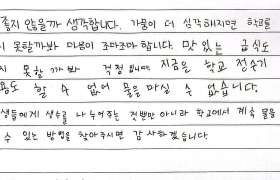 좋지 않을까 생각합니다. 가뭄이 더 심각해지면 학교를
못할까봐 마음이 조마조마 합니다. 맛있는 급식도
못할까봐 걱정됩니다. 지금은 학교 정수기
용도 할 수 없어 물을 마실 수 없습니다.
생들에게 생수를 나누어주는 것뿐만 아니라 학교에서 계속 물을
수 있는 방법을 찾아주시면 감사하겠습니다.